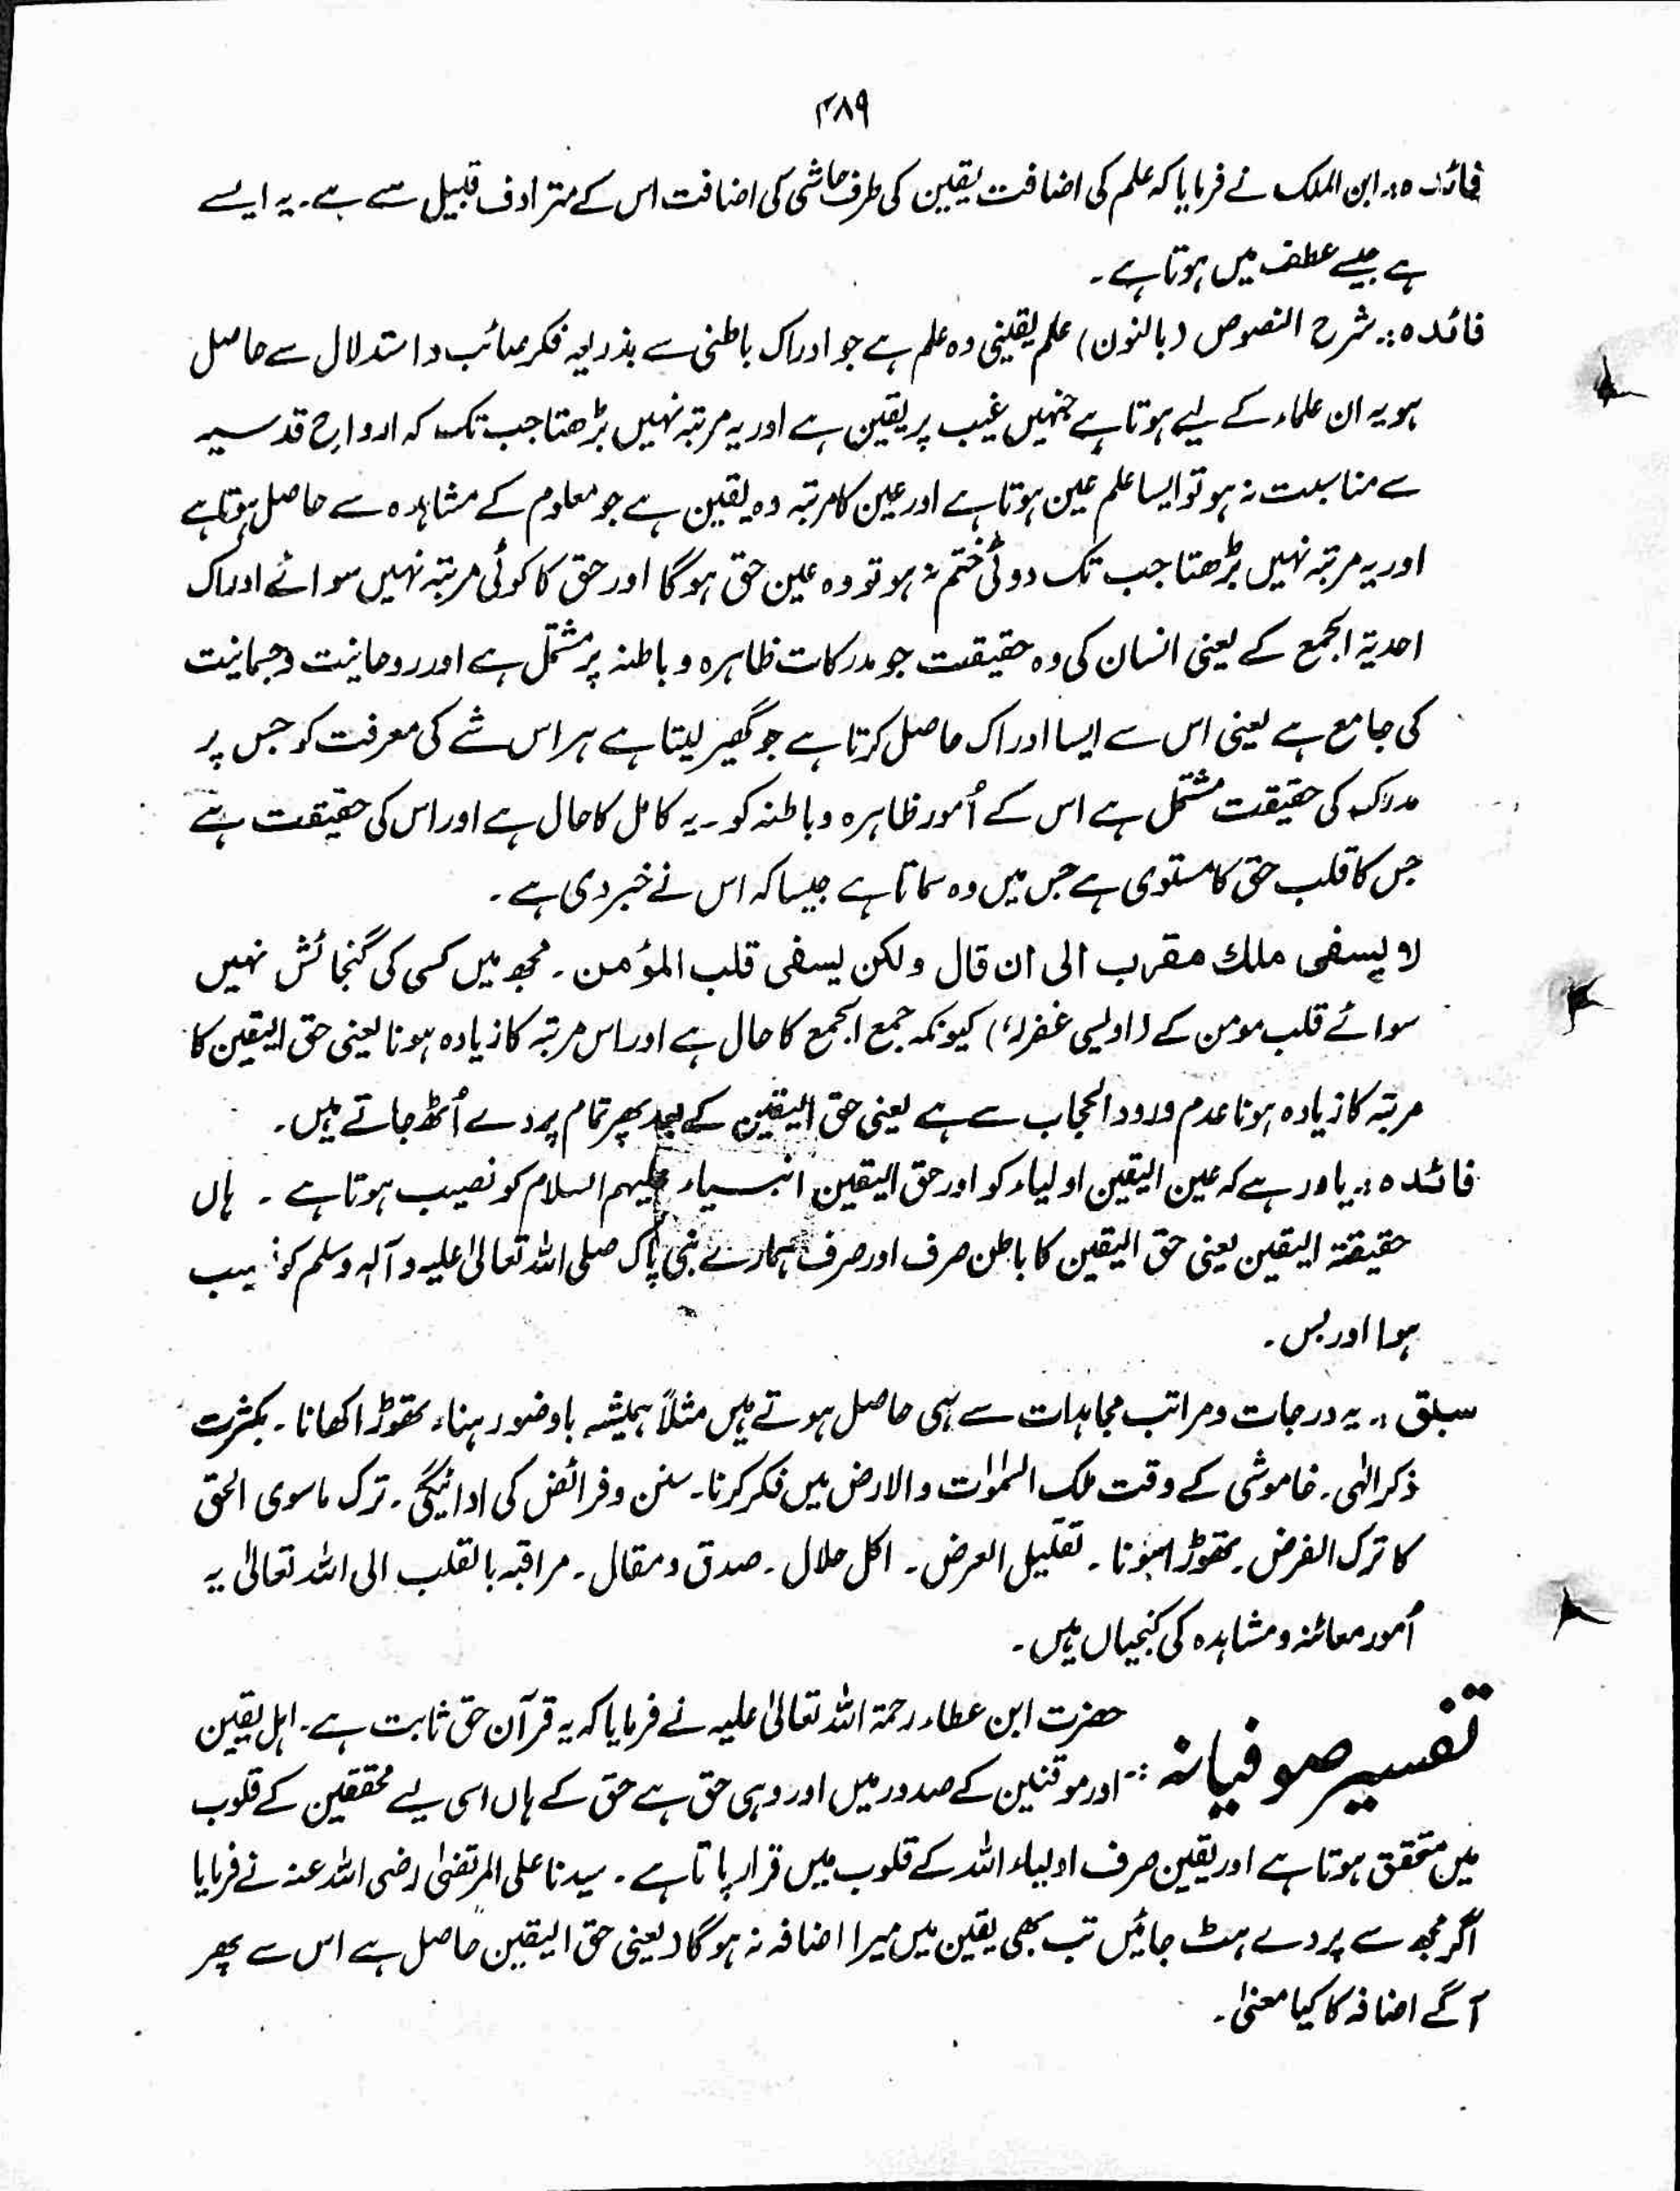 ۴۸۹
فائدہ:۔ ابن الملک نے فرمایا کہ علم کی اضافت یقین کی طرف حاشی کی اضافت اس کے مترادف قبیل سے ہے۔ یہ ایسے
ہے جیسے عطف میں ہوتا ہے۔
فائدہ:۔ شرح النصوص (بالنون) علم یقینی وہ علم ہے جو ادراک باطنی سے بذریعہ فکر صائب و استدلال سے حاصل
ہو یہ ان علماء کے لیے ہوتا ہے جنہیں غیب پر یقین ہے اور یہ مرتبہ نہیں بڑھتا جب تک کہ ارواح قدسیہ
سے مناسبت نہ ہو تو ایسا علم عین ہوتا ہے اور عین کا مرتبہ وہ یقین ہے جو معلوم کے مشاہدہ سے حاصل ہوتا ہے
اور یہ مرتبہ نہیں بڑھتا جب تک دوئی ختم نہ ہو تو وہ عین حق ہوگا اور حق کا کوئی مرتبہ نہیں سوائے ادراک
احدیۃ الجمع کے یعنی انسان کی وہ حقیقت جو مدرکات ظاہرہ و باطنہ پر مشتمل ہے اور روحانیت و جسمانیت
کی جامع ہے یعنی اس سے ایسا ادراک حاصل کرتا ہے جو گھیر لیتا ہے ہر اس شے کی معرفت کو جس پر
مدرک کی حقیقت مشتمل ہے اس کے اُمور ظاہرہ و باطنہ کو۔ یہ کامل کا حال ہے اور اس کی حقیقت ہے
جس کا قلب حق کا مستوی ہے جس میں وہ سماتا ہے جیسا کہ اس نے خبر دی ہے۔
لا یسفی ملك مقرب الی ان قال ولکن یسفی قلب المؤمن۔ مجھ میں کسی کی گنجائش نہیں
سوائے قلب مومن کے (اویسی غفرلہٗ) کیونکہ جمع الجمع کا حال ہے اور اس مرتبہ کا زیادہ ہونا یعنی حق الیقین کا
مرتبہ کا زیادہ ہونا عدم ورود الحجاب سے ہے یعنی حق الیقین کے بعد پھر تمام پردے اُٹھ جاتے ہیں۔
فائدہ:۔ یاد رہے کہ عین الیقین اولیاء کو اور حق الیقین انبیاء علیہم السلام کو نصیب ہوتا ہے۔ ہاں
حقیقۃ الیقین یعنی حق الیقین کا باطن صرف اور صرف ہمارے نبی پاک صلی اللہ تعالیٰ علیہ و آلہ وسلم کو نصیب
ہوا اور بس۔
سبق:۔ یہ درجات و مراتب مجاہدات سے ہی حاصل ہوتے ہیں مثلاً ہمیشہ باوضو رہنا، تھوڑا کھانا۔ بکثرت
ذکر الٰہی۔ خاموشی کے وقت ملک السمٰوٰت والارض میں فکر کرنا۔ سنن و فرائض کی ادائیگی۔ ترک ماسوی الحق
کا ترک الفرض۔ تھوڑا سونا۔ تقلیل العرض۔ اکل حلال۔ صدق و مقال۔ مراقبہ بالقلب الی اللہ تعالیٰ یہ
اُمور معائنہ و مشاہدہ کی کنجیاں ہیں۔
تفسیر صوفیانہ:۔ حضرت ابن عطاء رحمۃ اللہ تعالیٰ علیہ نے فرمایا کہ یہ قرآن حق ثابت ہے۔ اہل یقین
اور موقنین کے صدور میں اور وہی حق ہے حق کے ہاں اسی لیے محققین کے قلوب
میں متحقق ہوتا ہے اور یقین صرف اولیاء اللہ کے قلوب میں قرار پاتا ہے۔ سیدنا علی المرتضیٰ رضی اللہ عنہ نے فرمایا
اگر مجھ سے پردے ہٹ جائیں تب بھی یقین میں میرا اضافہ نہ ہوگا (یعنی حق الیقین حاصل ہے اس سے پھر
آگے اضافہ کا کیا معنیٰ۔